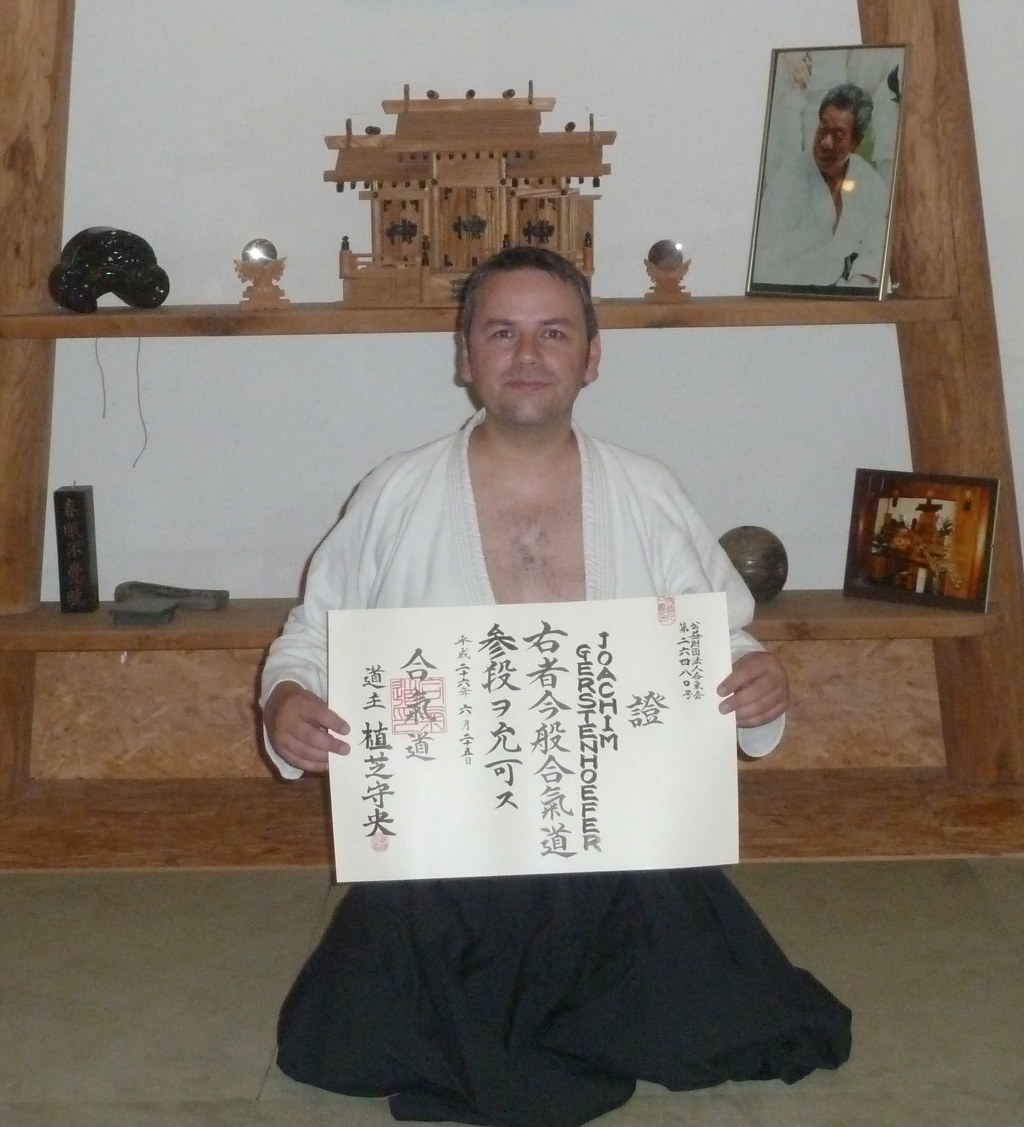 神
神
神
春眠不覺暁
公益財団法人合氣会
第二六四八〇号
證
JOACHIM
GERSTENHOEFER
右者今般合氣道
参段ヲ允可ス
平成二十六年 六月二十五日
合氣道
道主 植芝守央